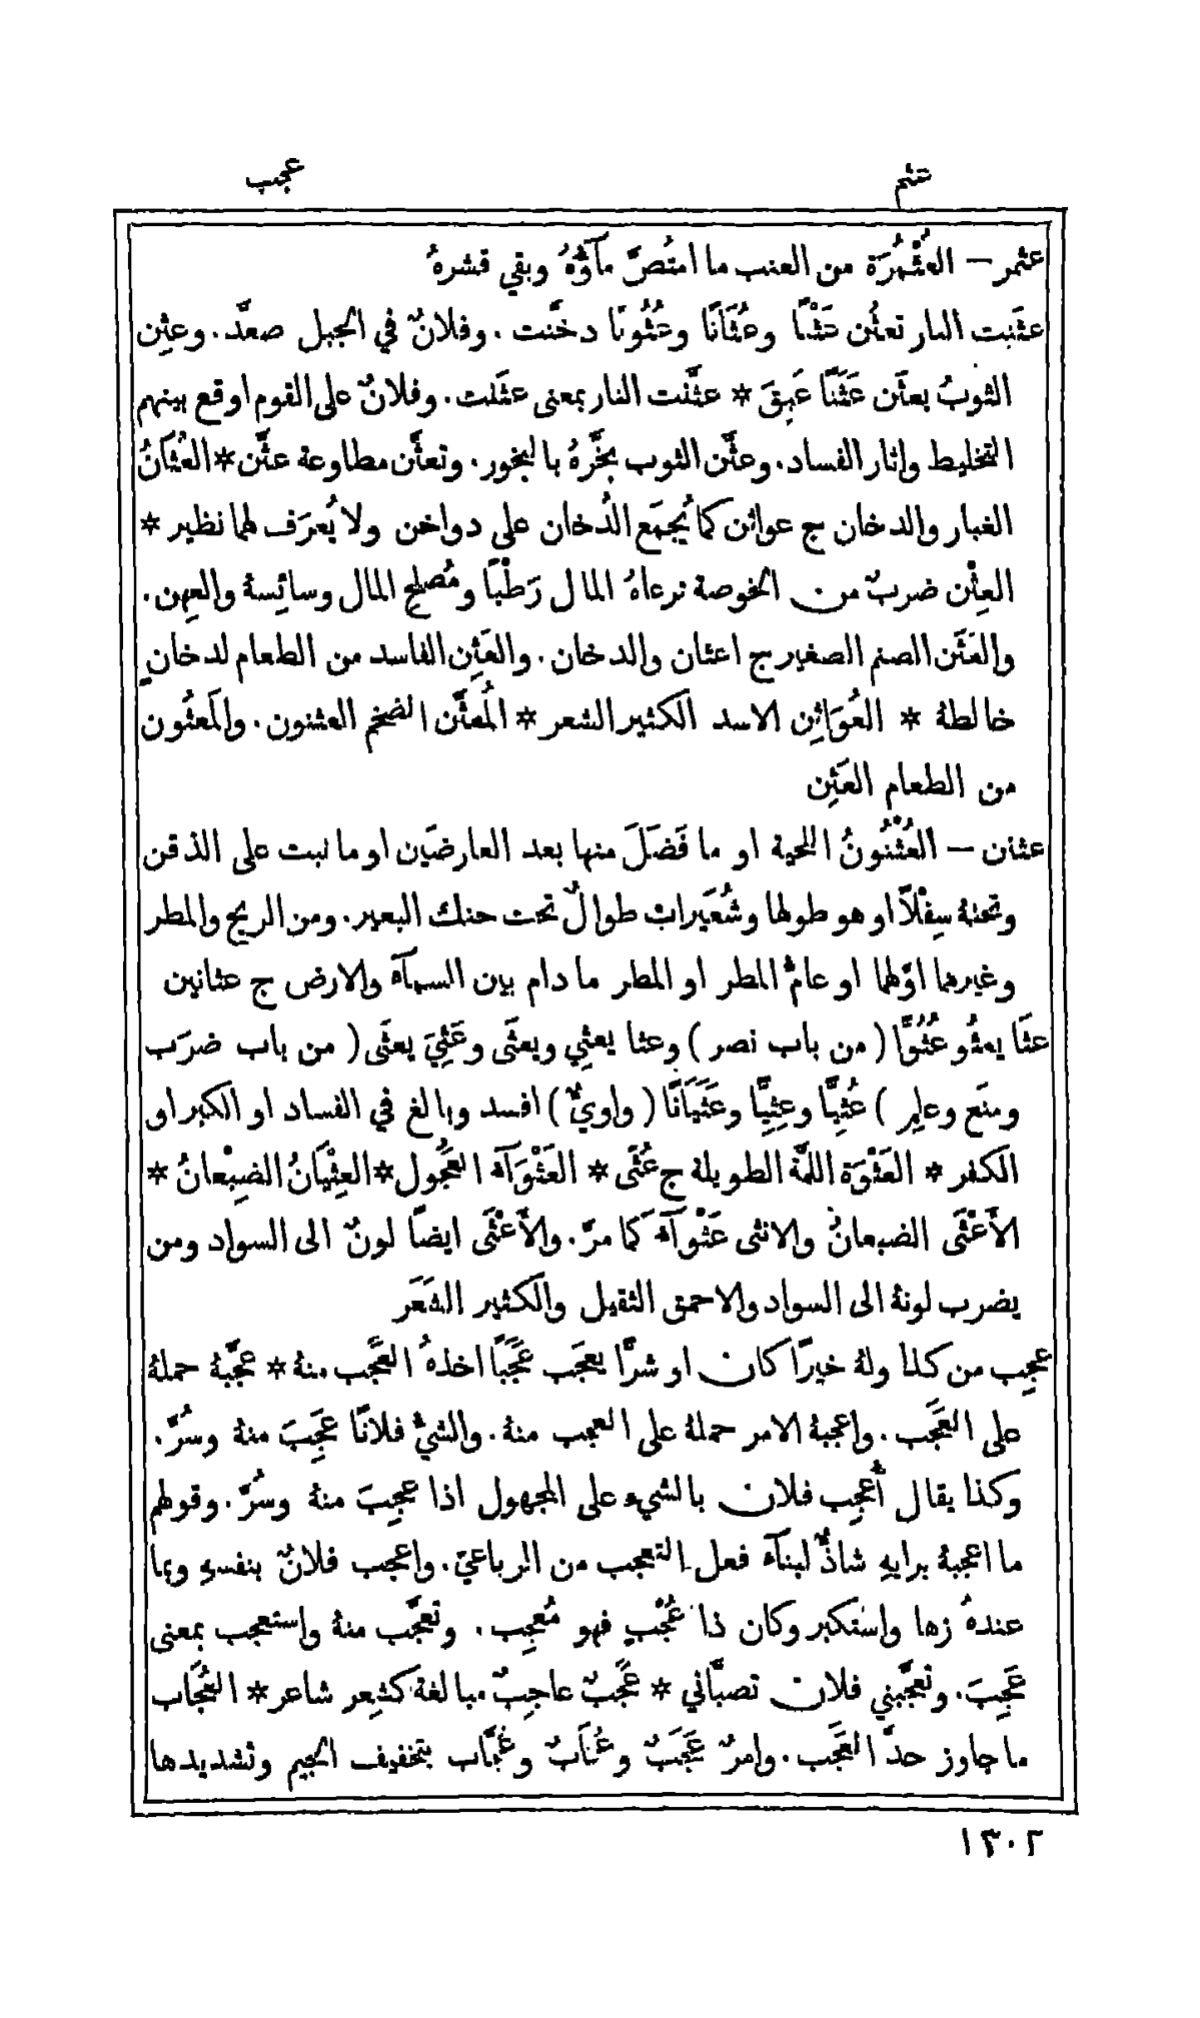 عثم
عجب
عثمر — العُثْمُرَة من العنب ما امتُصَّ مآؤُهُ وبقي قشرهُ
عثَنت النار تعثُن عَثْنًا وعُثَانًا وعُثُونًا دخَّنت . وفلانٌ في الجبل صعَّد . وعثِن
الثوبُ يعثَن عَثَنًا عَبِقَ * عثَّنت النار بمعنى عثَنت . وفلانٌ على القوم اوقع بينهم
التخليط واثار الفساد . وعثَّن الثوب بخَّرهُ بالبخور . وتعثَّن مطاوعة عثَّن * العُثَانُ
الغبار والدخان ج عواثن كما يُجمَع الدُخان على دواخن ولا يُعرَف لهما نظير *
العِثْن ضربٌ من الخوصة ترعاهُ المال رَطْبًا ومُصلِح المال وسائِسهُ والعِهن .
والعَثَن الصنم الصغير ج اعثان والدخان . والعَثِن الفاسد من الطعام لدخانٍ
خالطهُ * العُوَاثِن الاسد الكثير الشعر * المُعثَّن الضخم العثنون . والمَعثُون
من الطعام العَثِن
عثنن — العُثْنُونُ اللحية او ما فَضَلَ منها بعد العارضَين او ما نبت على الذقن
وتحتهُ سِفْلًا او هو طولها وشُعَيرات طوالٌ تحت حنك البعير . ومن الريح والمطر
وغيرهما اوَّلهما او عامُّ المطر او المطر ما دام بين السمآء والارض ج عثانين
عثَا يعثُو عُثُوًّا ( من باب نصر ) وعثا يعثِي ويعثَى وعَثِيَ يعثَى ( من باب ضرَب
ومنَع وعلِم ) عُثِيًّا وعِثِيًّا وعَثَيَانًا ( واويٌّ ) افسد وبالغ في الفساد او الكبر او
الكفر * العَثْوَة اللمَّة الطويلة ج عُثًى * العَثْوَآء العَجُول * العِثْيَانُ الضِبْعانُ *
الأَعْثَى الضبعانُ والانثى عَثْوَآء كما مرَّ . والأَعْثَى ايضًا لونٌ الى السواد ومن
يضرب لونهُ الى السواد والاحمق الثقيل والكثير الشَعَر
عجِب من كذا ولهُ خيرًا كان او شرًّا يعجَب عَجَبًا اخذهُ العَجَب منهُ * عجَّبهُ حملهُ
على العَجَب . واعجبهُ الامر حملهُ على العجب منهُ . والشيُّ فلانًا عَجِبَ منهُ وسُرَّ .
وكذا يقال أُعجِب فلان بالشيء على المجهول اذا عجِبَ منهُ وسُرَّ . وقولهم
ما اعجبهُ برايهِ شاذٌّ لبنآء فعل التعجب من الرباعيّ . واعجب فلانٌ بنفسهِ وبما
عندهُ زها واستكبر وكان ذا عُجْبٍ فهو مُعجِب . وتعجَّب منهُ واستعجب بمعنى
عَجِبَ . وتعجَّبني فلان تصبَّاني * عَجَبٌ عاجِبٌ مبالغة كشِعر شاعر * العُجَاب
ما جاوز حدَّ العَجَب . وامرٌ عَجَبٌ وعُجَابٌ وعُجَّاب بتخفيف الجيم وتشديدها
١٣٠٢